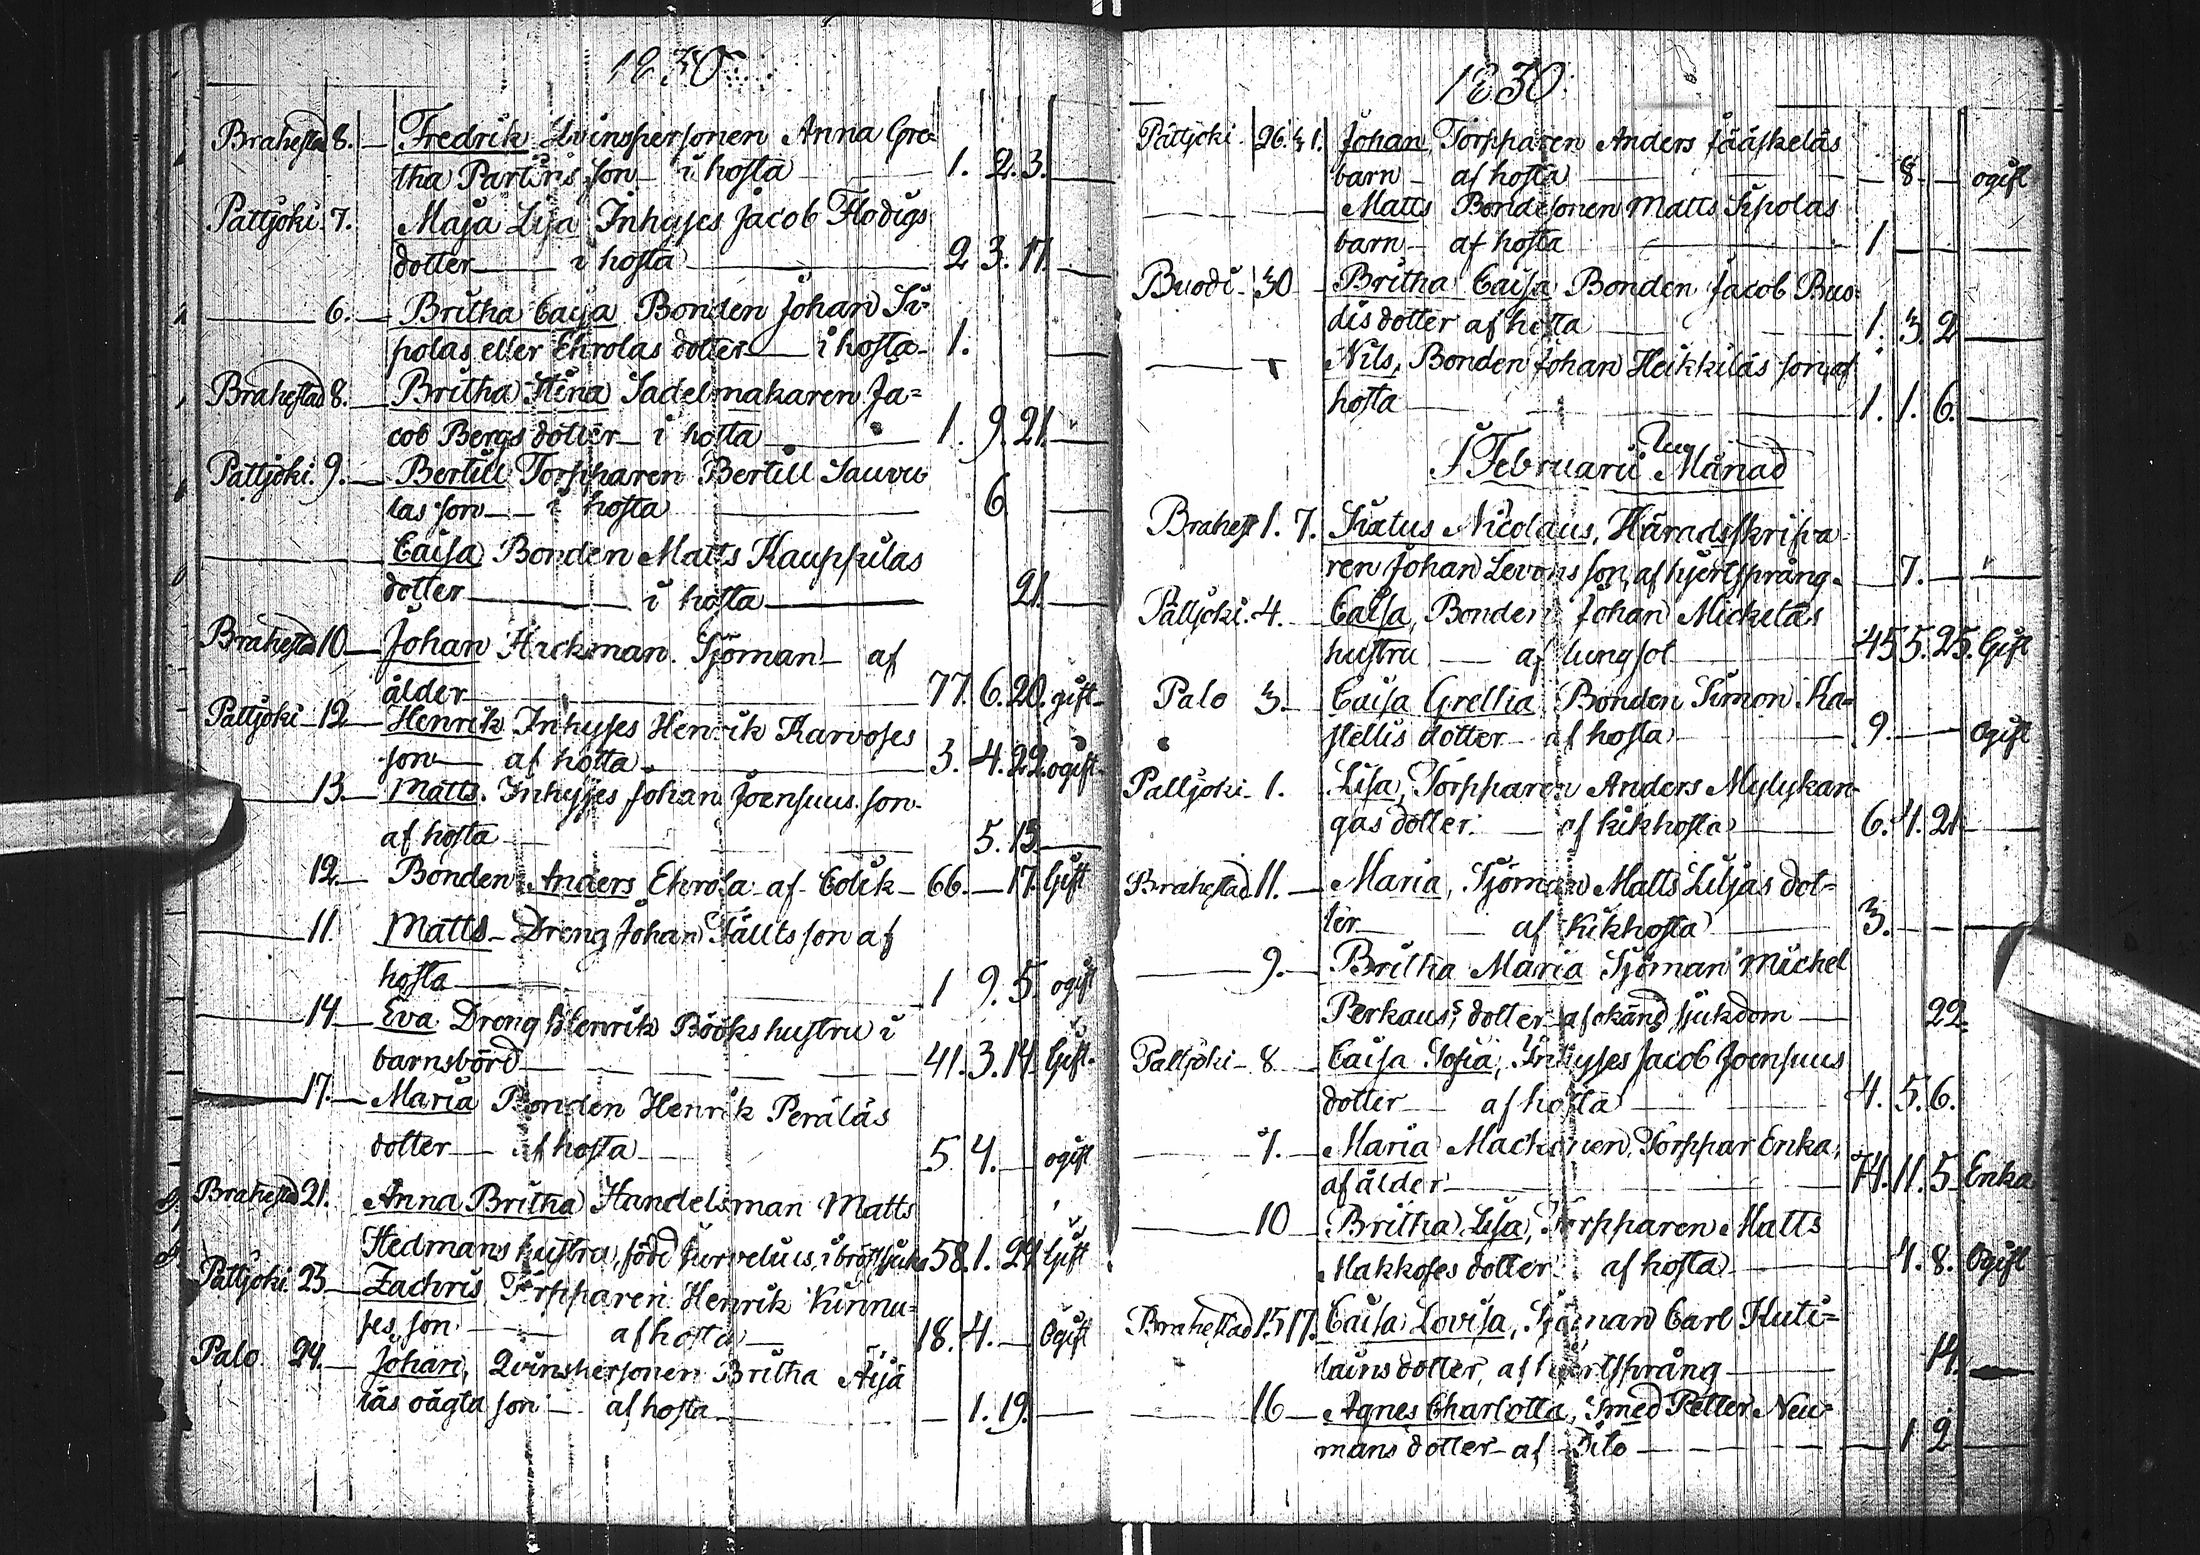 1830
Brahestad 8. Fredrik Qvinspersonen Anna Gre-
tha Parviis son i hosta 1. 2. 3.
Pattjoki 7. Maja Lisa Inhyses Jacob Flodigs
dotter i hosta 2 3. 17.
6. Britha Caisa Bonden Johan Si-
polas eller Ehrolas dotter i hosta 1.
Brahestad 8. Britha Stina Sadelmakaren Ja=
cob Bergs dotter i hosta 1. 9. 21.
Pattjoki. 9. Bertill Torpparen Bertill Sauvu
las son i hosta 6
Caisa Bonden Matts Kauppilas
dotter i hosta 21.
Brahestad 10 Johan Hickman. Sjöman af
ålder 77. 6. 20. gift
Pattjoki 12 Henrik Inhyses Henrik Karvoses
son af hosta 3. 4. 22. ogift
13. Matts. Inhyses Johan Joensuus son
af hosta 5. 13.
12. Bonden Anders Ehrola af Colik 66. 17. Gift
11. Matts Dreng Johan Fällts son af
hosta 1 9. 5. ogift
14. Eva Dreng Henrik Bööks hustru i
barnsbörd 41. 3. 14. Gift.
17. Maria Bonden Henrik Peräläs
dotter af hosta 5 4. ogift
Brahestad 21. Anna Britha Handelsman Matts
Hedmans hustru, född 58. 1. 24 Gift
Pattjoki 23 Zachris Torpparen Henrik Kinnu=
ses son af hosta 18. 4. Ogift
Palo 24. Johan, Qvinspersonen Britha Äijä
läs oägta son af hosta 1. 19.
1830.
Pattjoki 26. 31. Johan, Torpparen Anders Jääskeläs
barn af hosta 8 ogift
Matts Bondesonen Matts Sipolas
barn af hosta 1
Buodi 30 Britha Caisa Bonden Jacob Buo=
dis dotter af hosta 1. 3. 2
Nils, Bonden Johan Heikkiläs son, af
hosta 1. 1. 6.
I Februarii Månad
Brahest 1. 7. Sixtus Nicolaus, Häradsskrifva
ren Johan Levons son, af hjertsprång. 7. "
Pattjoki. 4. Caisa, Bonden Johan Mickelas
hustru af lungsot 45 5. 25. Gift
Palo 3. Caisa Gretha Bonden Simon Ka=
stellis dotter af hosta 9. Ogift
Pattjoki 1. Lisa, Torpparen Anders Mylykan
gas dotter. af kikhosta 6. 4. 21.
Brahestad 11. Maria, Sjöman Matts Liljas dot=
ter af Kikhosta 3.
9. Britha Maria Sjöman Michel
Perkaus dotter af okänd sjukdom 22.
Pattjoki 8 Caisa Sofia, Inhyses Jacob Joensuus
dotter af hosta 4. 5. 6.
7. Maria Torppar Enka,
af ålder 74. 11. 5. Enka
10 Britha Lisa, Torpparen Matts
Makkoses dotter af hosta 4. 8. Ogift
Brahestad 15 17. Caisa Lovisa, Sjöman Carl Kuti=
lains dotter, af hjertsprång 14.
16 Agnes Charlotta, Smed Petter Neu=
mans dotter af dito 1 2